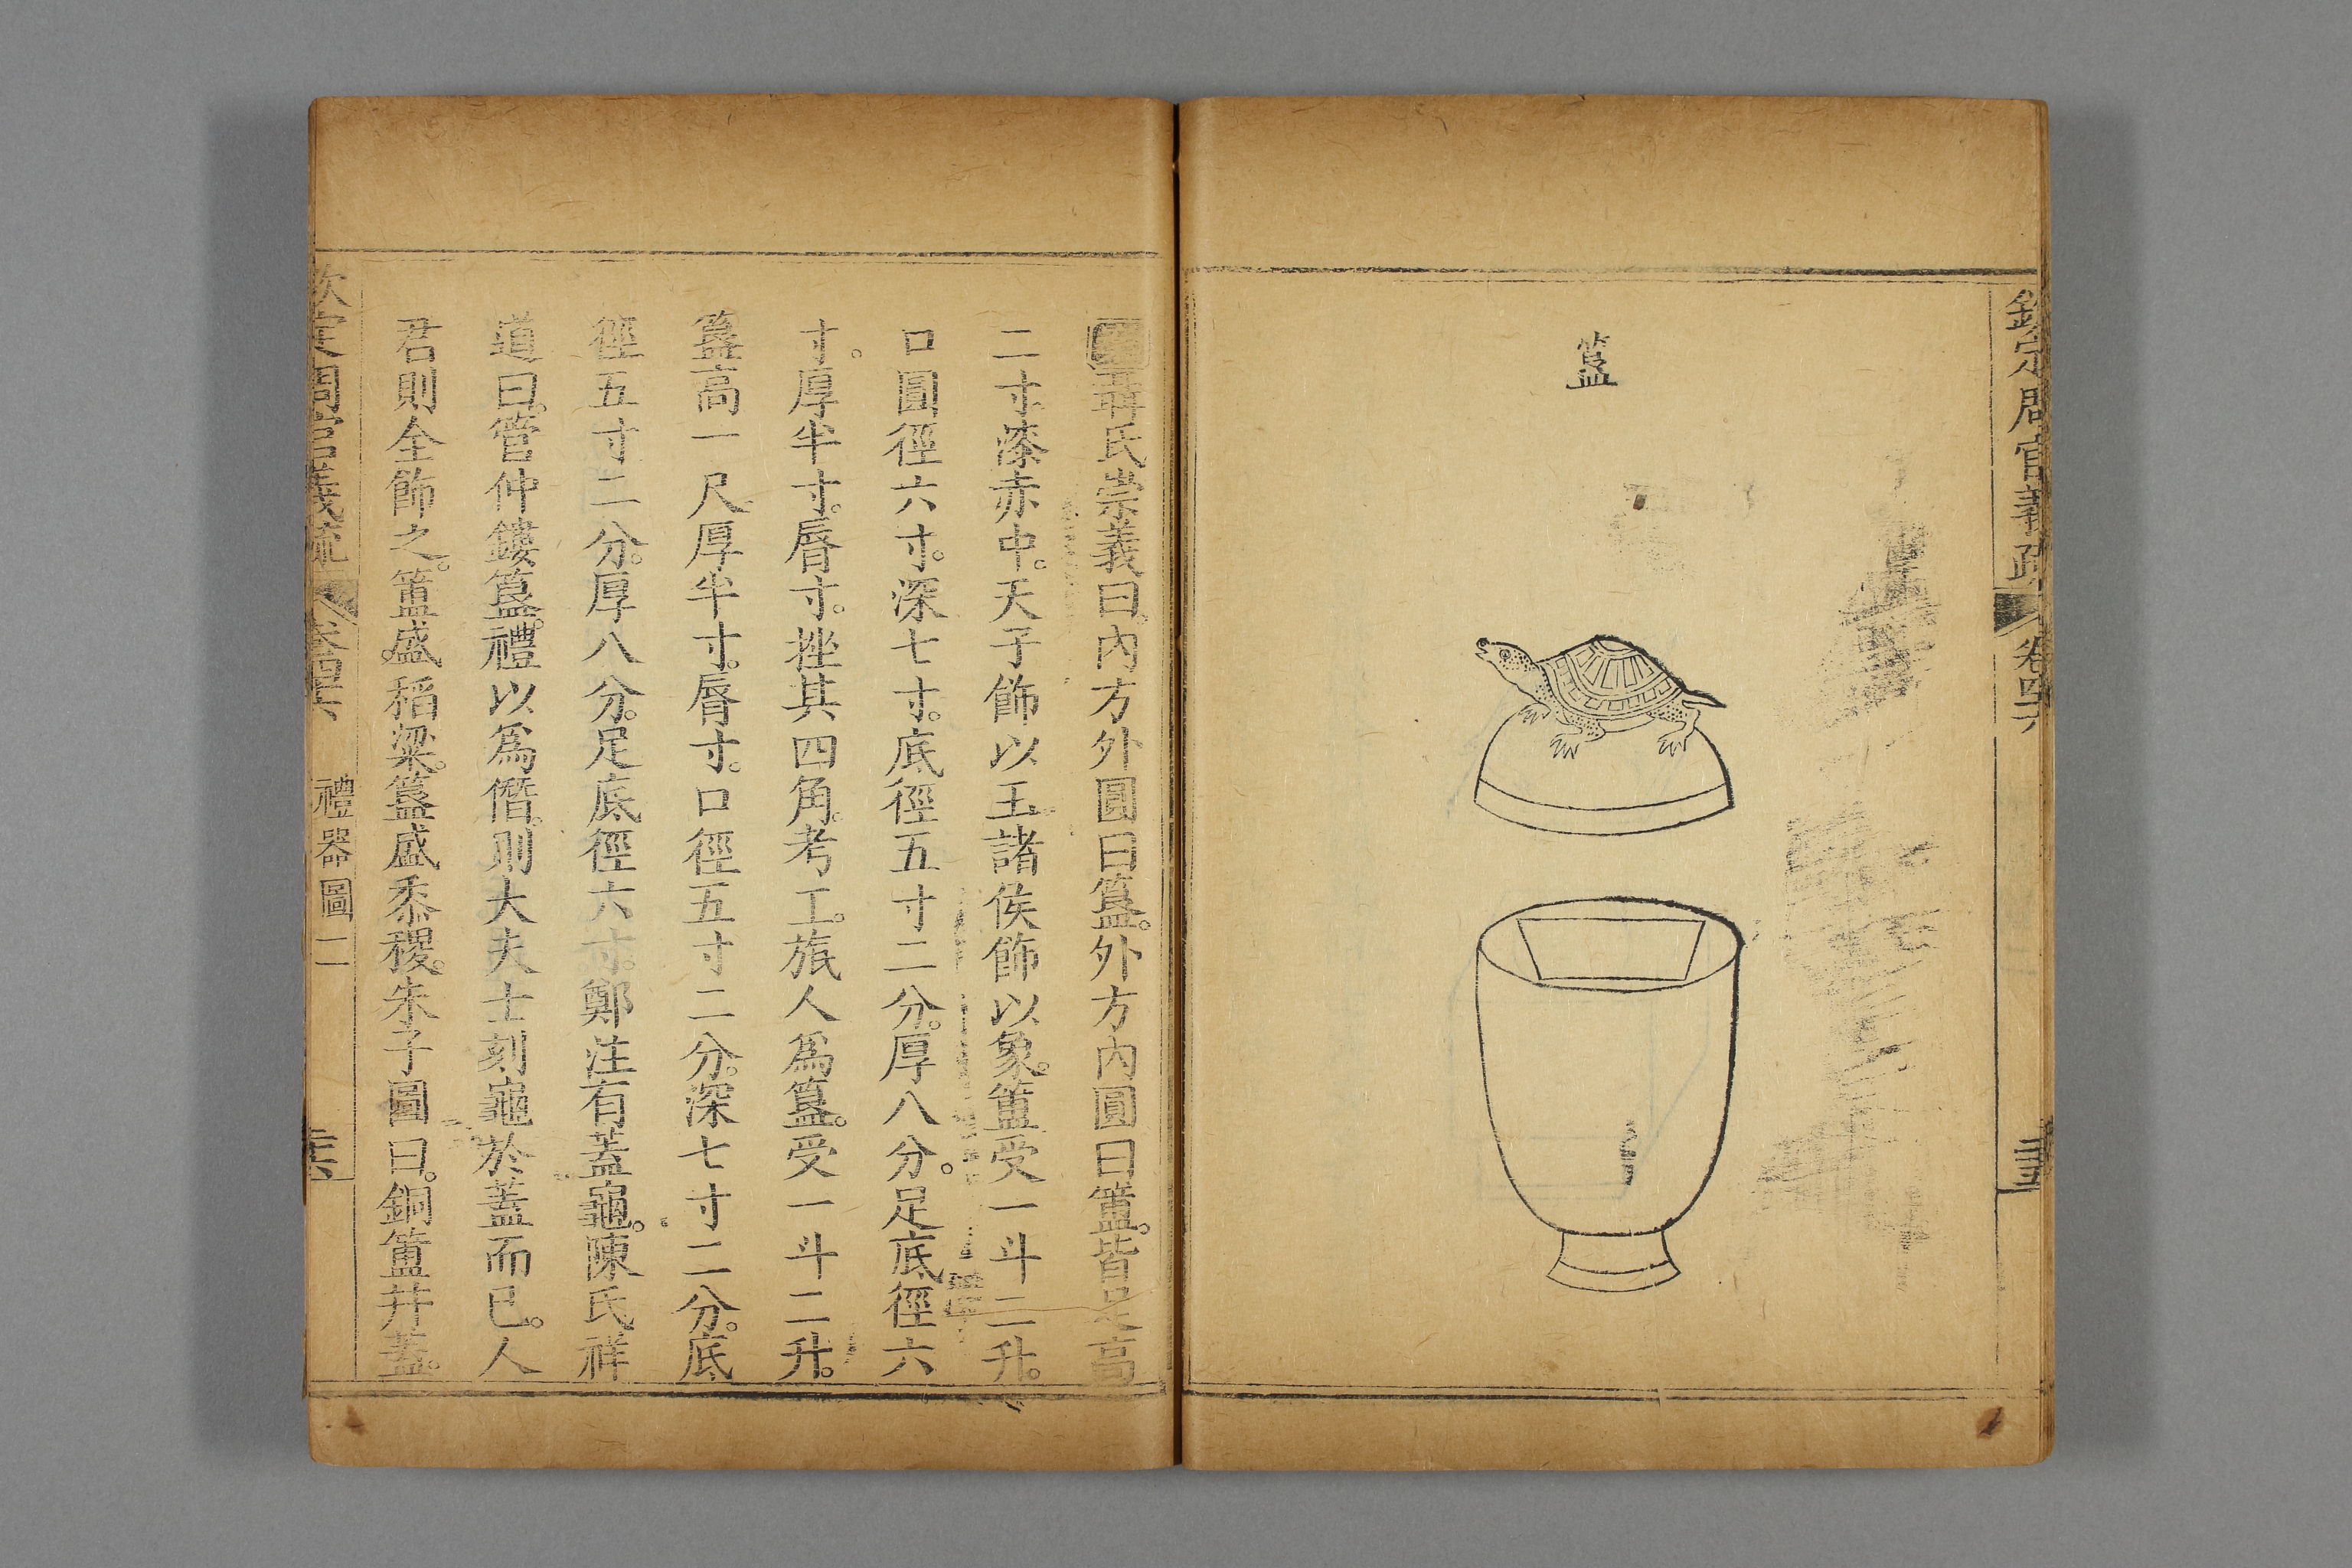 欽定周官義疏 卷四十六
簋
聶氏崇義曰。內方外圓曰簋。外方內圓曰簠。皆足高
二寸漆赤中。天子飾以玉諸侯飾以象。簠受一斗二升。
口圓徑六寸。深七寸。底徑五寸二分。厚八分。足底徑六
寸。厚半寸。脣寸。挫其四角。考工。旅人為簋。受一斗二升。
簋高一尺厚半寸。脣寸。口徑五寸二分。深七寸二分。底
徑五寸二分。厚八分。足底徑六寸。鄭注有蓋龜。陳氏祥
道曰。管仲鏤簋。禮以為僭。則大夫士刻龜於蓋而已。人
君則全飾之。簠盛稻粱。簋盛黍稷。朱子圖曰。銅簠并蓋。
欽定周官義疏 卷四十六 禮器圖二